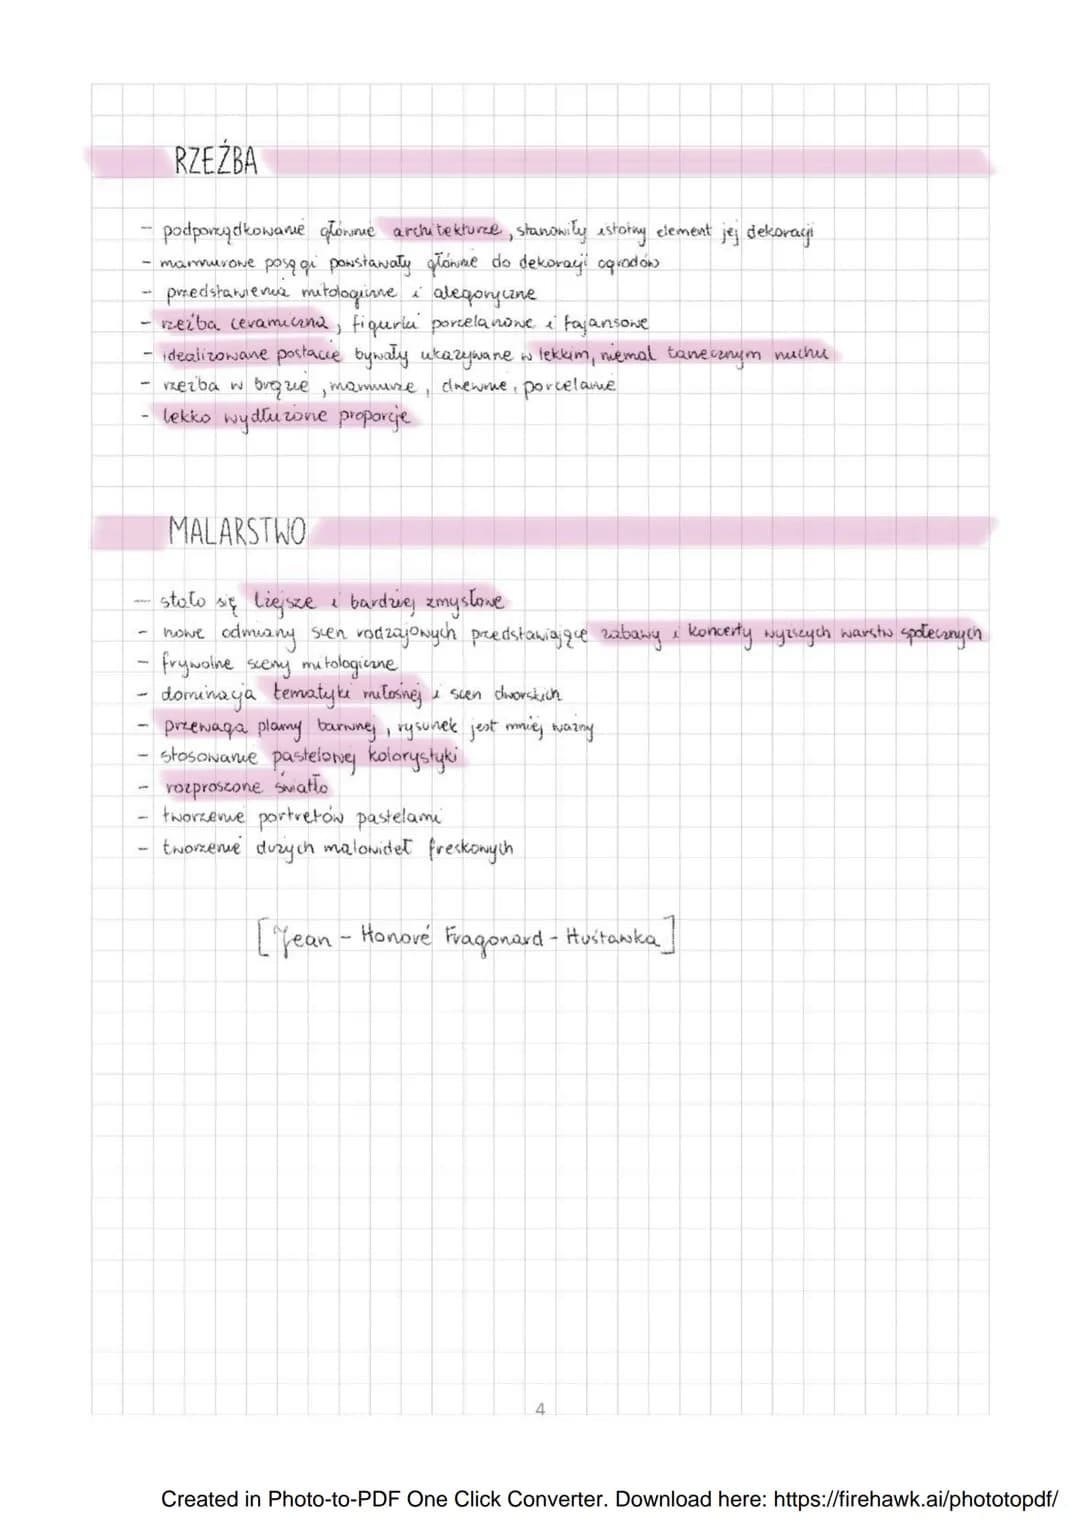 RZEŹBA
- podporządkowanie głównie architekturze, stanowiły istotny element jej dekoracji
- marmurowe posągi powstawały głównie do dekoracji ogrodów
- przedstawienia mitologiczne i alegoryczne
- rzeźba ceramiczna, figurki porcelanowe i fajansowe
- idealizowane postacie bywały ukazywane w lekkim, niemal tanecznym ruchu
- rzeźba w brązie, marmurze, drewnie, porcelanie
- lekko wydłużone proporcje
MALARSTWO
- stało się lżejsze i bardziej zmysłowe
- nowe odmiany scen rodzajowych przedstawiające zabawy i koncerty wyższych warstw społecznych
- frywolne sceny mitologiczne
- dominacja tematyki miłosnej i scen dworskich
- przewaga plamy barwnej, rysunek jest mniej ważny
- stosowanie pastelowej kolorystyki
- rozproszone światło
- tworzenie portretów pastelami
- tworzenie dużych malowideł freskowych
[Jean - Honoré Fragonard - Huśtawka]
4
Created in Photo-to-PDF One Click Converter. Download here: https://firehawk.ai/phototopdf/